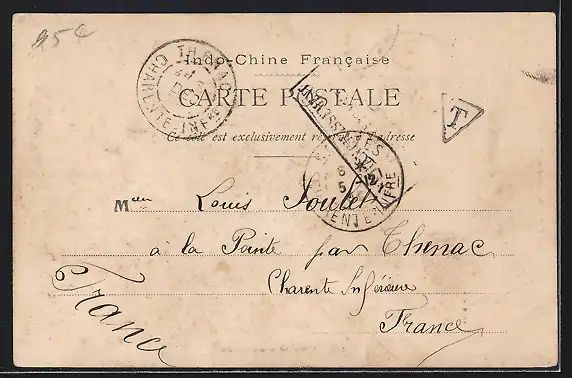 95¢
Indo-Chine Française
CARTE POSTALE
Ce côté est exclusivement réservé à l'adresse
T
CHARENTE-INFRE
INSUFFISANT
M Louis Joulet
à la Pointe par Thenac
Charente Inférieure
France
France